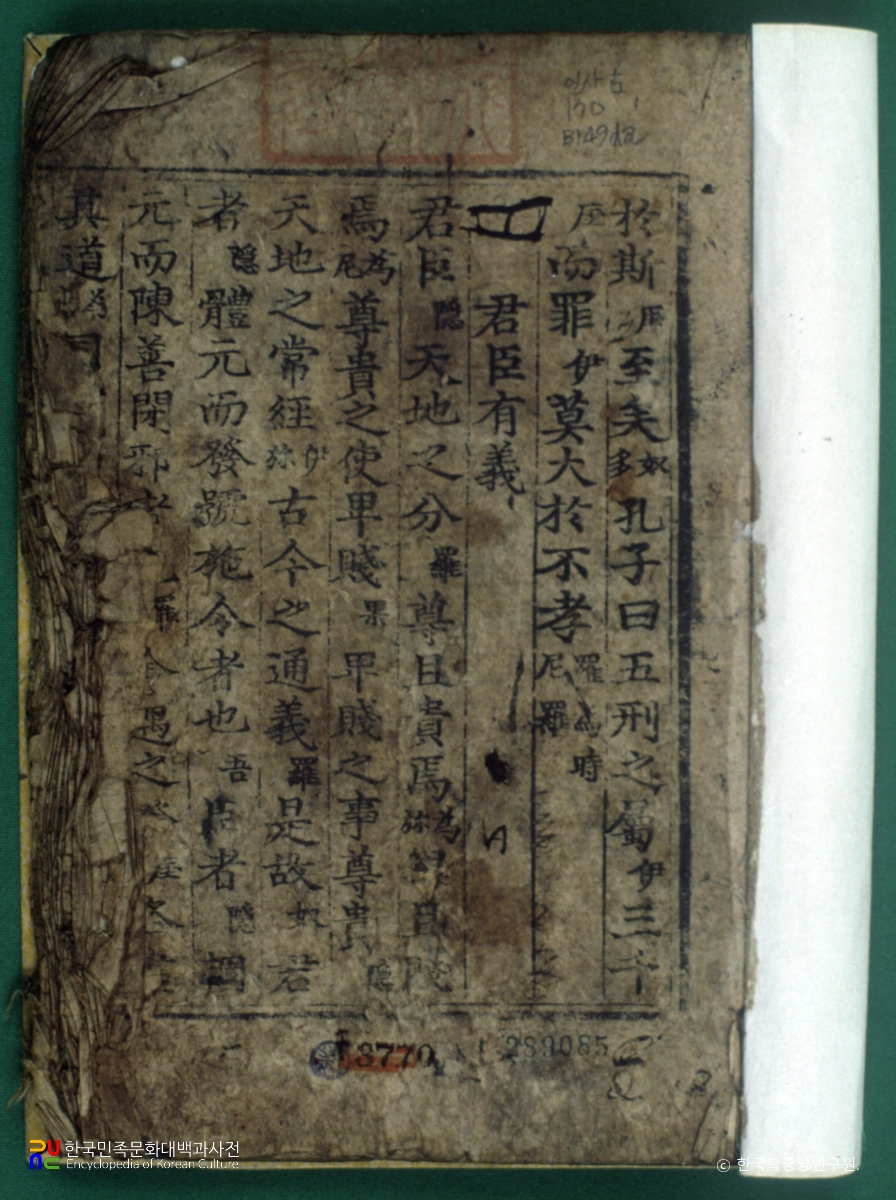 인사 古
170
於斯厓至矣奴多孔子曰五刑之屬伊三千
厓而罪伊莫大於不孝羅爲時尼羅
君臣有義
君臣隱天地之分羅尊且貴焉爲弥 且賤
焉爲尼尊貴之使卑賤果卑賤之事尊貴隱
天地之常經伊弥古今之通義羅是故奴君
者隱體元而發號施令者也吾臣者隱調
元而陳善閉邪者 羅 遇之
其道爲
8770
289085
한국민족문화대백과사전
Encyclopedia of Korean Culture
© 한국학중앙연구원.